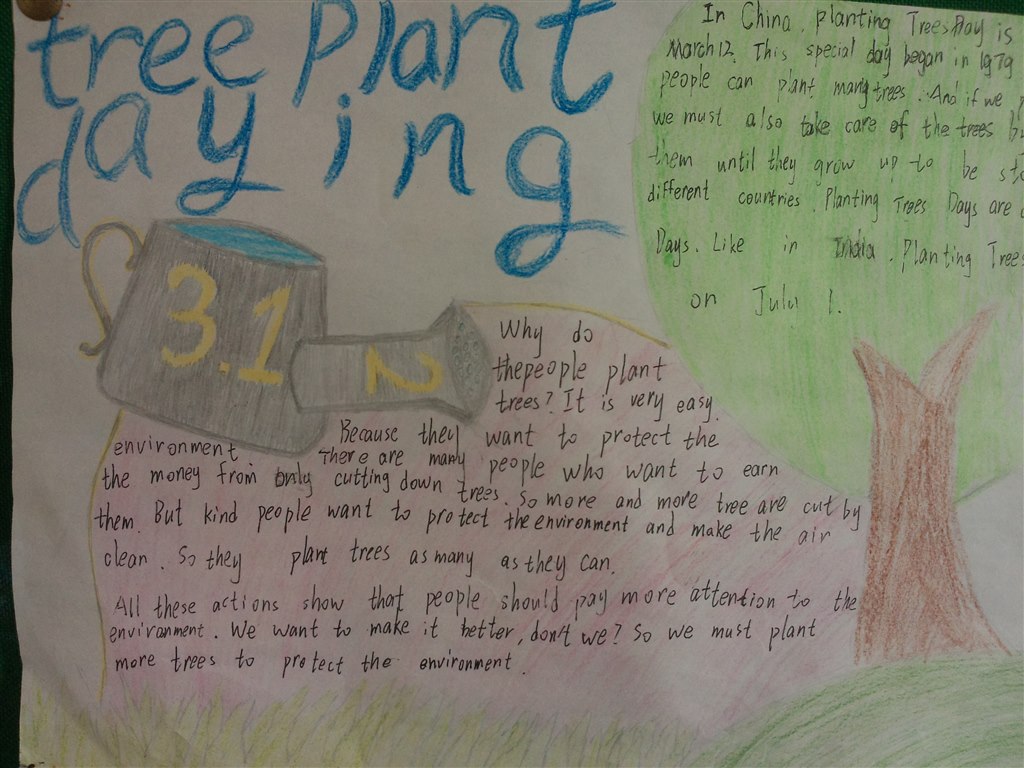 tree plant
day ing
In China, planting Trees Day is
March 12. This special day began in 1979
people can plant many trees. And if we
we must also take care of the trees
them until they grow up to be
different countries. Planting Trees Days are
Days. Like in India. Planting Trees
on July 1.
3.12
Why do
thepeople plant
trees? It is very easy.
Because they want to protect the
environment There are many people who want to earn
the money from only cutting down trees. So more and more tree are cut by
them. But kind people want to protect the environment and make the air
clean. So they plant trees as many as they can.
All these actions show that people should pay more attention to the
enviranment. We want to make it better, don't we? So we must plant
more trees to protect the environment.